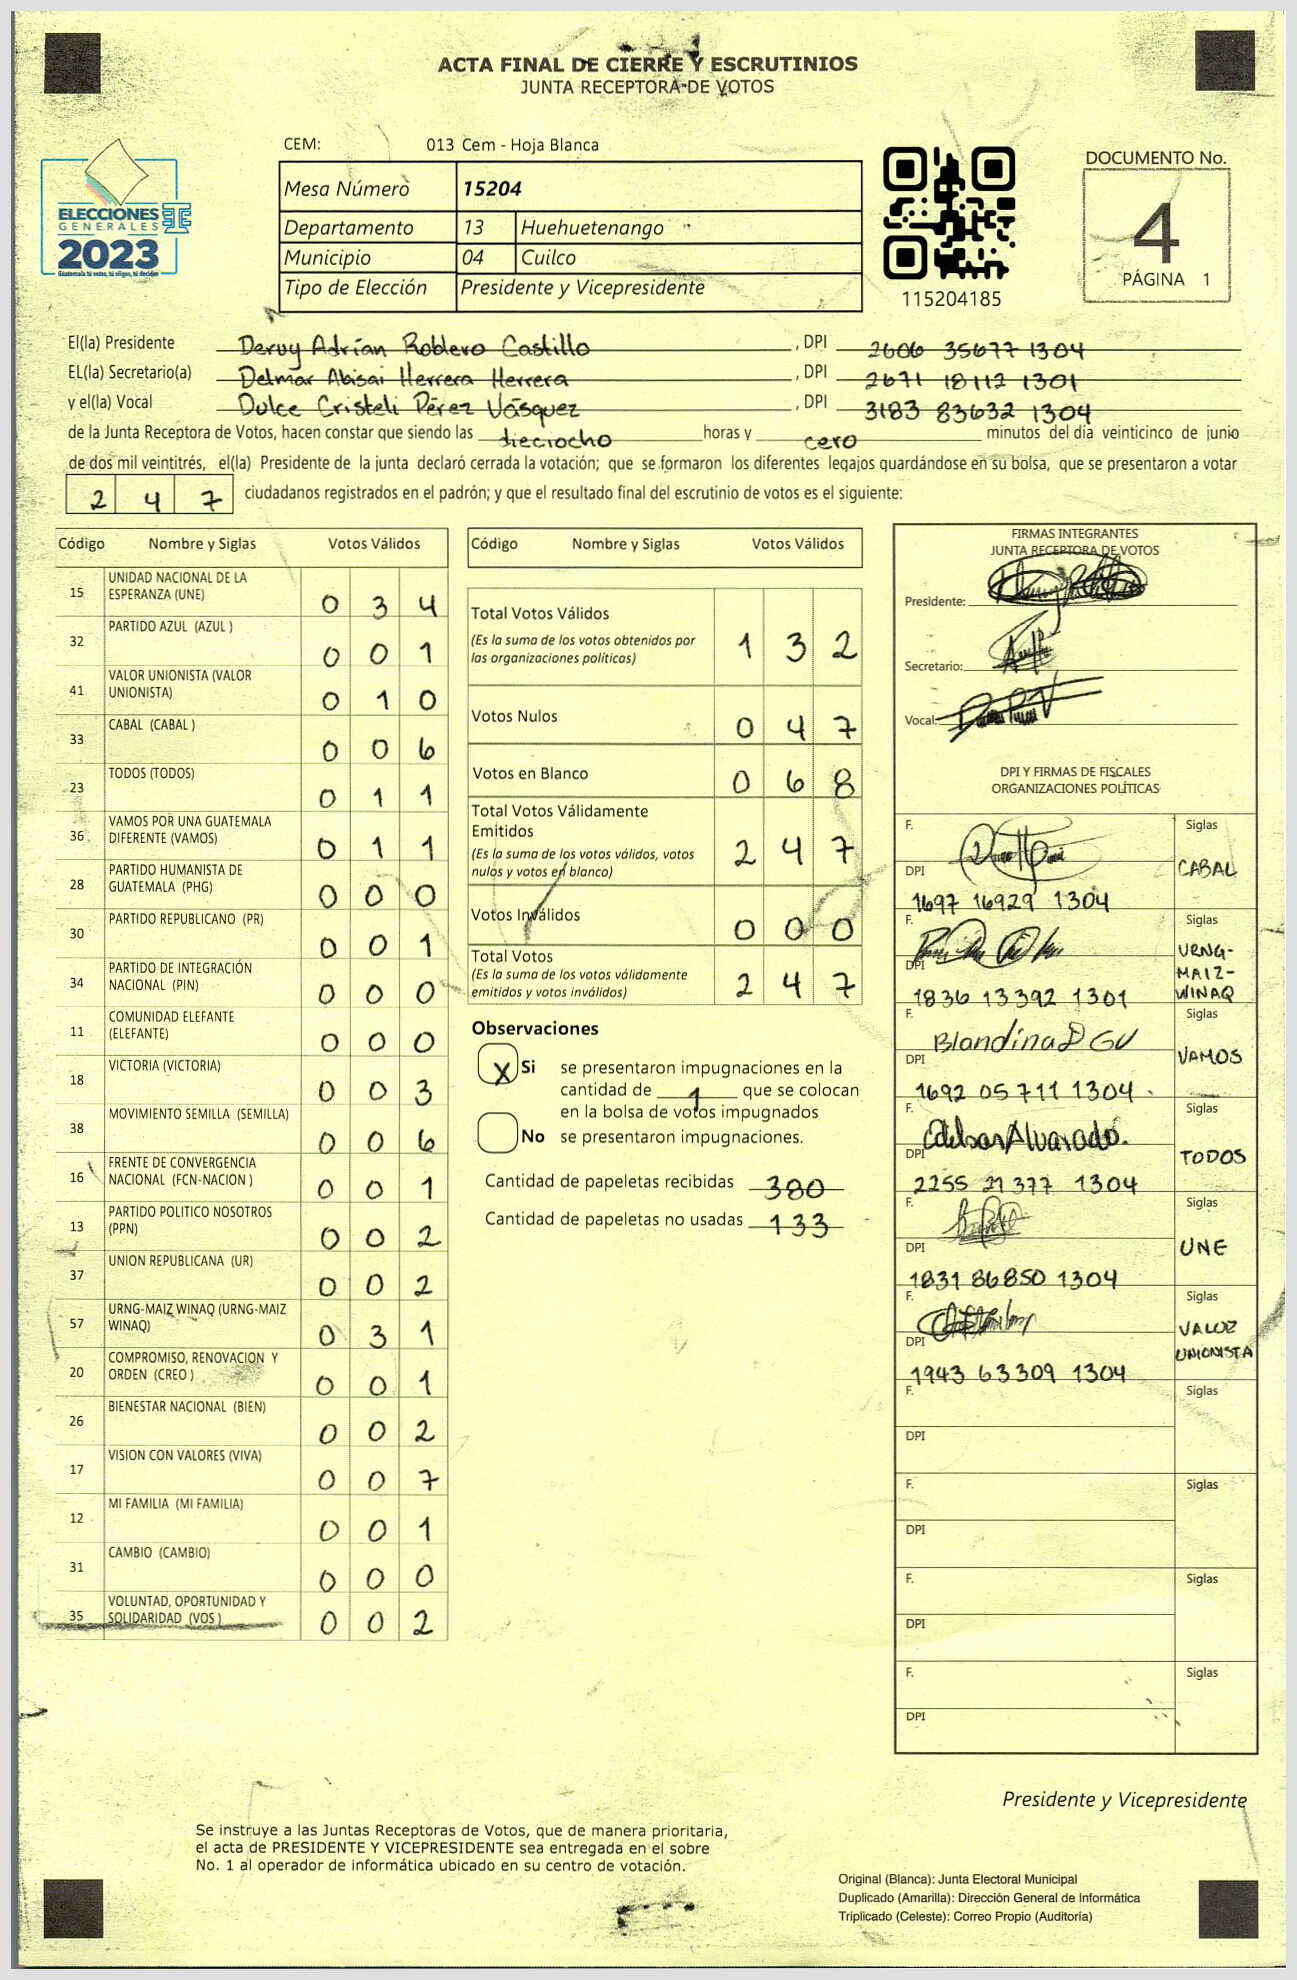 ACTA FINAL DE CIERRE Y ESCRUTINIOS
JUNTA RECEPTORA DE VOTOS
CEM: 013 Cem - Hoja Blanca
Mesa Número 15204
Departamento 13 Huehuetenango
Municipio 04 Cuilco
Tipo de Elección Presidente y Vicepresidente
ELECCIONES
GENERALES
2023
Guatemala tú votas, tú eliges, tú decides
115204185
DOCUMENTO No.
4
PÁGINA 1
El(la) Presidente Deruy Adrían Roblero Castillo, DPI 2606 35677 1304
EL(la) Secretario(a) Delmar Abisai Herrera Herrera, DPI 2671 18112 1301
y el(la) Vocal Dulce Cristeli Pérez Vásquez, DPI 3183 83632 1304
de la Junta Receptora de Votos, hacen constar que siendo las dieciocho horas y cero minutos del día veinticinco de junio
de dos mil veintitrés, el(la) Presidente de la junta declaró cerrada la votación; que se formaron los diferentes legajos guardándose en su bolsa, que se presentaron a votar
247 ciudadanos registrados en el padrón; y que el resultado final del escrutinio de votos es el siguiente:
Código Nombre y Siglas Votos Válidos
15 UNIDAD NACIONAL DE LA
ESPERANZA (UNE) 0 3 4
32 PARTIDO AZUL (AZUL ) 0 0 1
41 VALOR UNIONISTA (VALOR
UNIONISTA) 0 1 0
33 CABAL (CABAL ) 0 0 6
23 TODOS (TODOS) 0 1 1
36 VAMOS POR UNA GUATEMALA
DIFERENTE (VAMOS) 0 1 1
28 PARTIDO HUMANISTA DE
GUATEMALA (PHG) 0 0 0
30 PARTIDO REPUBLICANO (PR) 0 0 1
34 PARTIDO DE INTEGRACIÓN
NACIONAL (PIN) 0 0 0
11 COMUNIDAD ELEFANTE
(ELEFANTE) 0 0 0
18 VICTORIA (VICTORIA) 0 0 3
38 MOVIMIENTO SEMILLA (SEMILLA) 0 0 6
16 FRENTE DE CONVERGENCIA
NACIONAL (FCN-NACION ) 0 0 1
13 PARTIDO POLITICO NOSOTROS
(PPN) 0 0 2
37 UNION REPUBLICANA (UR) 0 0 2
57 URNG-MAIZ WINAQ (URNG-MAIZ
WINAQ) 0 3 1
20 COMPROMISO, RENOVACION Y
ORDEN (CREO ) 0 0 1
26 BIENESTAR NACIONAL (BIEN) 0 0 2
17 VISION CON VALORES (VIVA) 0 0 7
12 MI FAMILIA (MI FAMILIA) 0 0 1
31 CAMBIO (CAMBIO) 0 0 0
35 VOLUNTAD, OPORTUNIDAD Y
SOLIDARIDAD (VOS ) 0 0 2
Código Nombre y Siglas Votos Válidos
Total Votos Válidos 1 3 2
(Es la suma de los votos obtenidos por
las organizaciones políticas)
Votos Nulos 0 4 7
Votos en Blanco 0 6 8
Total Votos Válidamente
Emitidos 2 4 7
(Es la suma de los votos válidos, votos
nulos y votos en blanco)
Votos Inválidos 0 0 0
Total Votos 2 4 7
(Es la suma de los votos válidamente
emitidos y votos inválidos)
Observaciones
X Si se presentaron impugnaciones en la
cantidad de 1 que se colocan
en la bolsa de votos impugnados
No se presentaron impugnaciones.
Cantidad de papeletas recibidas 380
Cantidad de papeletas no usadas 133
FIRMAS INTEGRANTES
JUNTA RECEPTORA DE VOTOS
Presidente:
Secretario:
Vocal:
DPI Y FIRMAS DE FISCALES
ORGANIZACIONES POLÍTICAS
F. Siglas
DPI CABAL
1697 16929 1304
F. Siglas
DPI URNG-
MAIZ-
WINAQ
1836 13392 1301
F. Blandina Siglas
DPI VAMOS
1692 05 711 1304
F. Edelsar Alvarado. Siglas
DPI TODOS
2255 21 377 1304
F. Siglas
DPI UNE
1831 86850 1304
F. Siglas
DPI VALOR
UNIONISTA
1943 63309 1304
F. Siglas
DPI
F. Siglas
DPI
F. Siglas
DPI
F. Siglas
DPI
Presidente y Vicepresidente
Se instruye a las Juntas Receptoras de Votos, que de manera prioritaria,
el acta de PRESIDENTE Y VICEPRESIDENTE sea entregada en el sobre
No. 1 al operador de informática ubicado en su centro de votación.
Original (Blanca): Junta Electoral Municipal
Duplicado (Amarilla): Dirección General de Informática
Triplicado (Celeste): Correo Propio (Auditoría)